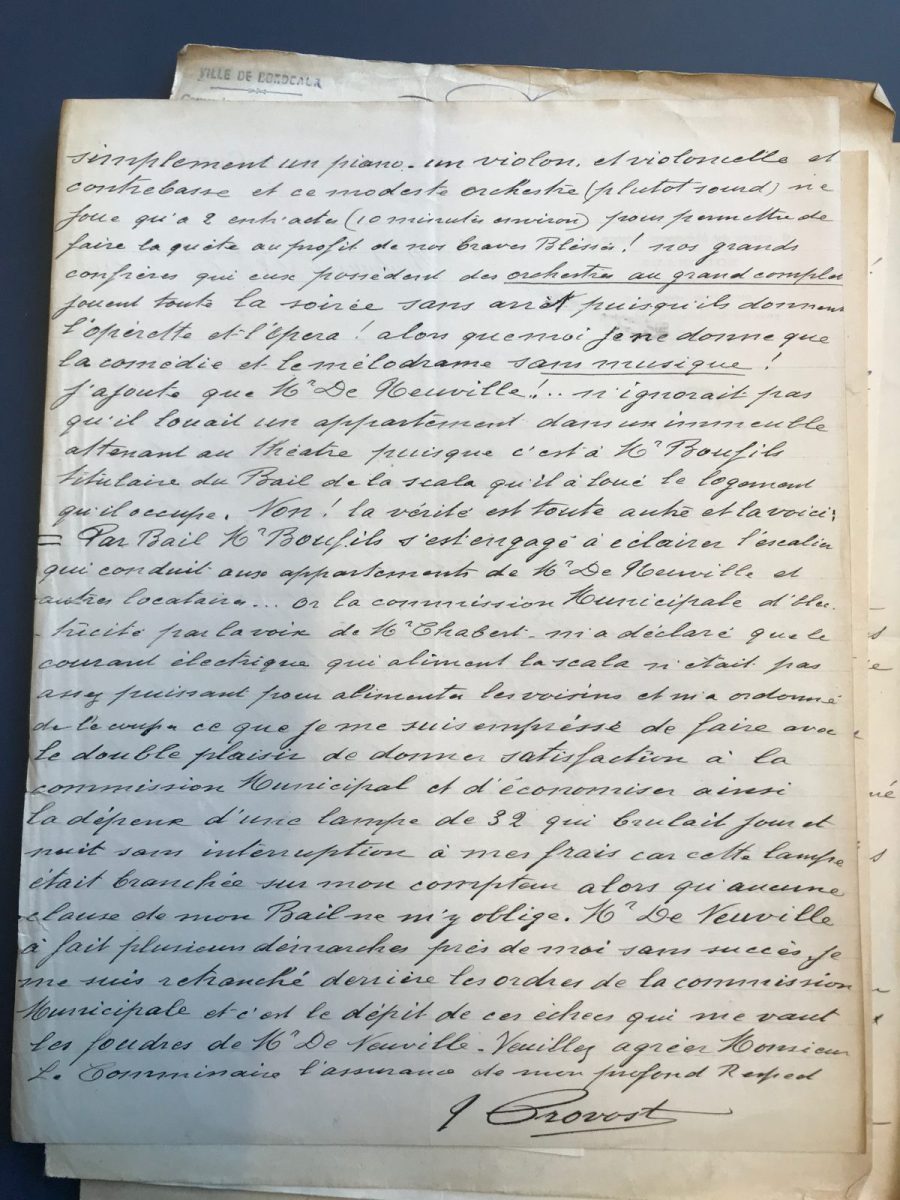 VILLE DE BORDEAUX
simplement un piano. un violon. et violoncelle et
contrebasse et ce modeste orchestre (plutot sourd) ne
joue qu'a 2 entr'actes (10 minutes environ) pour permettre de
faire la quête au profit de nos braves Blessés! nos grands
confrères qui eux possèdent des orchestres au grand complet
jouent toute la soirée sans arrêt puisqu'ils donnent
l'opérette et l'opera! alors que moi je ne donne que
la comédie et le mélodrame sans musique!
j'ajoute que Mr De Neuville!.. n'ignorait pas
qu'il louait un appartement dans un immeuble
attenant au théatre puisque c'est à Mr Boufils
titulaire du Bail de la scala qu'il à loué le logement
qu'il occupe. Non! la vérité est toute autre et la voici:
= Par Bail Mr Boufils s'est engagé à éclairer l'escalier
qui conduit aux appartements de Mr De Neuville et
autres locataires... or la commission Municipale d'élec
-tricité par la voix de Mr Chabert - m'a déclaré que le
courant électrique qui aliment la scala n'était pas
assez puissant pour alimenter les voisins et m'a ordonné
de le couper ce que je me suis empréssé de faire avec
le double plaisir de donner satisfaction à la
commission Municipal et d'économiser ainsi
la dépense d'une lampe de 32 qui brulait jour et
nuit sans interruption à mes frais car cette lampe
était branchée sur mon compteur alors qu'aucune
clause de mon Bail ne m'y oblige. Mr De Neuville
à fait plusieurs démarches près de moi sans succès. je
me suis retranché derrière les ordres de la commission
Municipale et c'est le dépit de ces échecs qui me vaut
les foudres de Mr De Neuville. Veuillez agréer Monsieur
Le Commissaire l'assurance de mon profond Respect
Provost